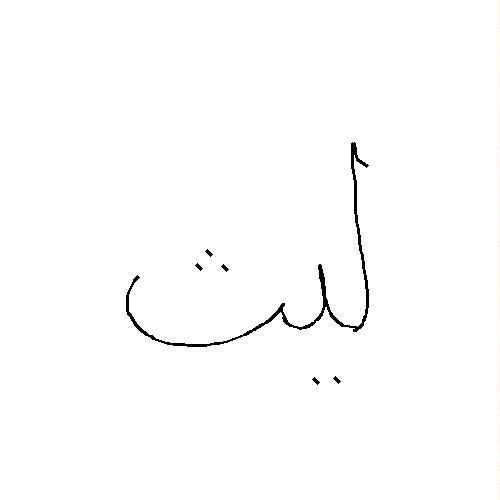 ليث